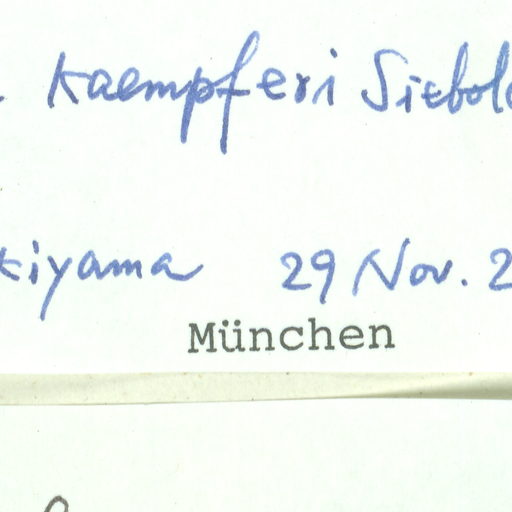 . Kaempferi Siebold
kiyama 29 Nov. 2
München